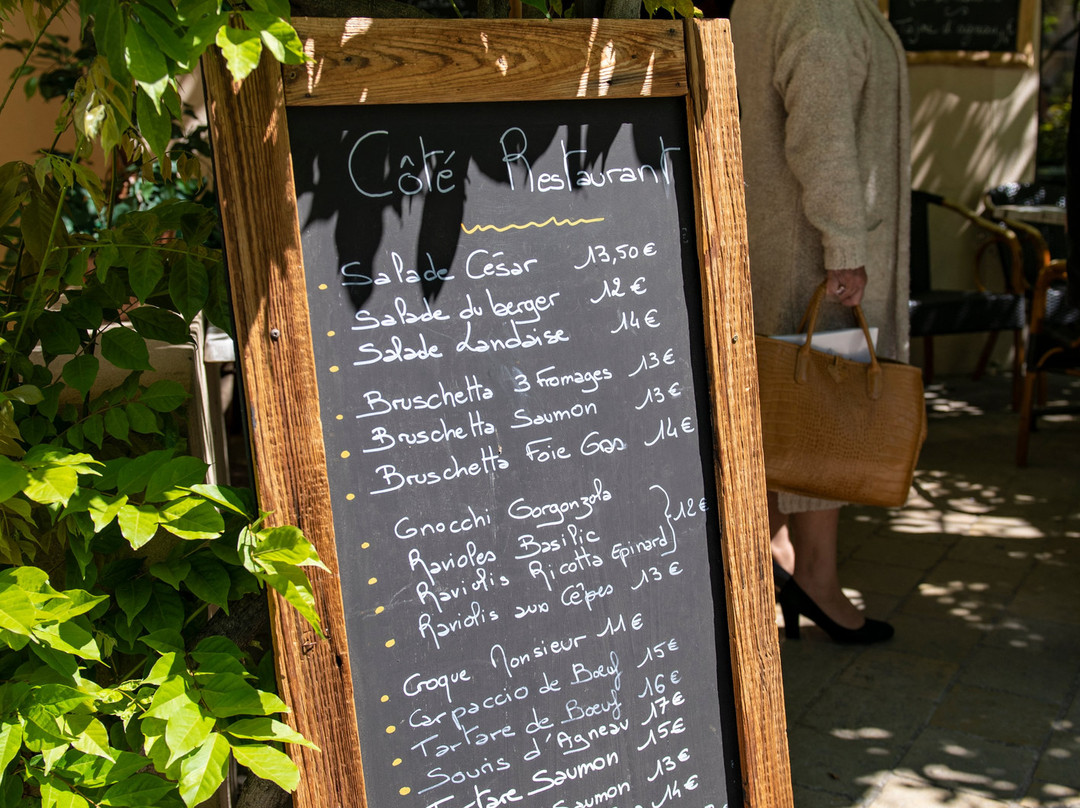 Côté Restaurant
Salade César 13,50€
Salade du berger 12€
Salade Landaise 14€
Bruschetta 3 Fromages 13€
Bruschetta Saumon 13€
Bruschetta Foie Gras 14€
Gnocchi Gorgonzola
Ravioles Basilic
Raviolis Ricotta Epinard } 12€
Raviolis aux Cêpes 13€
Croque Monsieur 11€
Carpaccio de Bœuf 15€
Tartare de Bœuf 16€
Souris d'Agneau 17€
Tartare Saumon 15€
Saumon 13€
14€